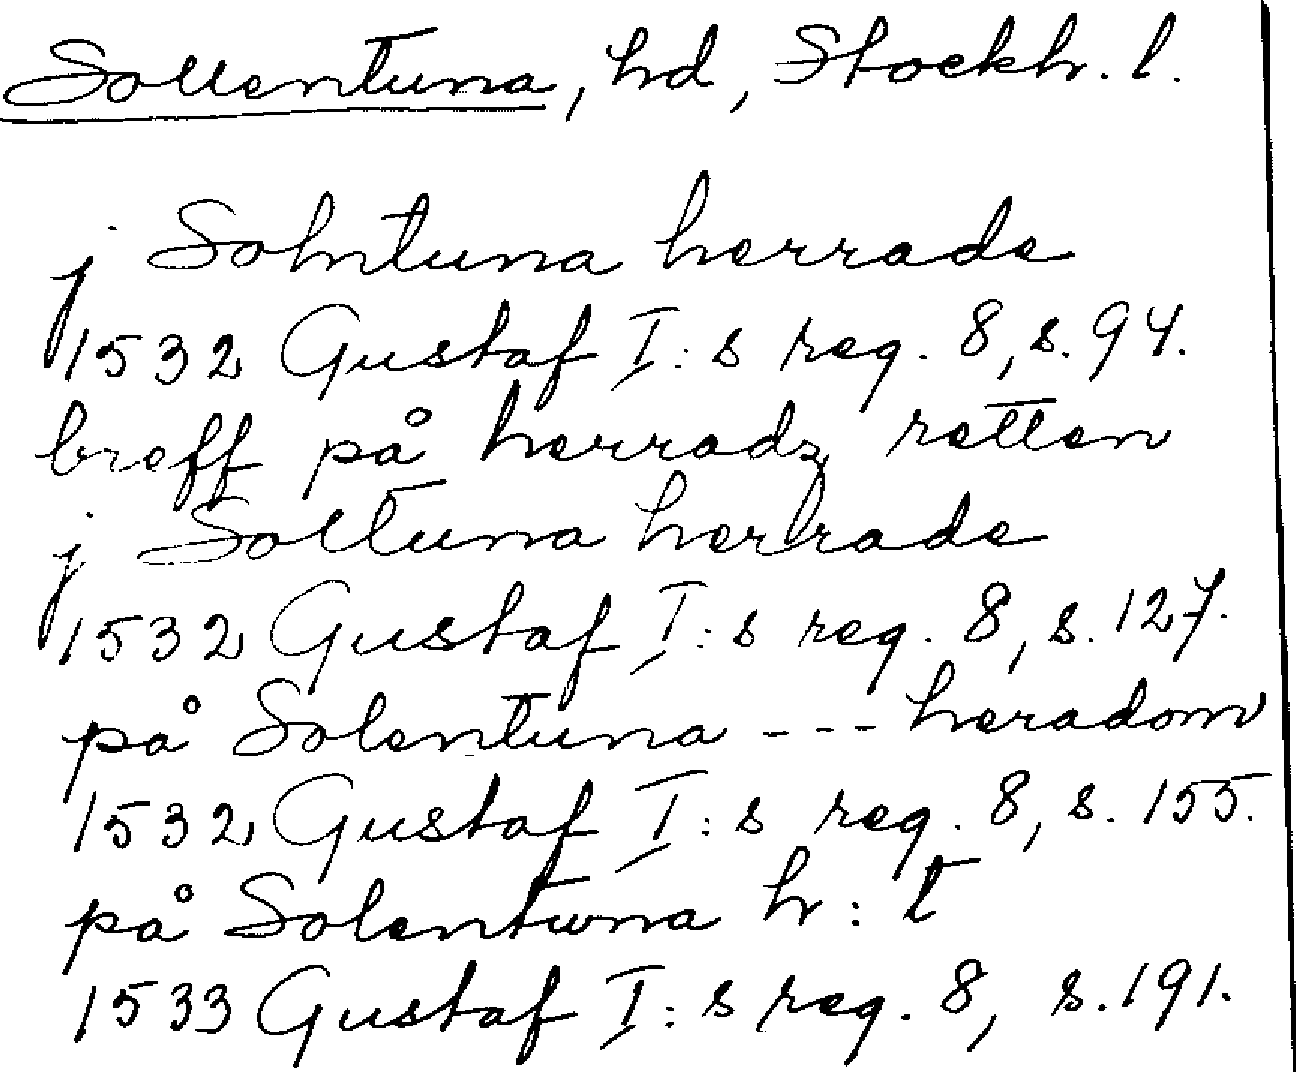 Sollentuna, hd, Stockh. l.
j Solntuna herrade
1532 Gustaf I:s reg. 8, s. 94.
breff på herradz retten
j Soltuna herrade
1532 Gustaf I:s reg. 8, s. 127.
på Solentuna --- heradom
1532 Gustaf I:s reg. 8, s. 155.
på Solentwna h:t
1533 Gustaf I:s reg. 8, s. 191.